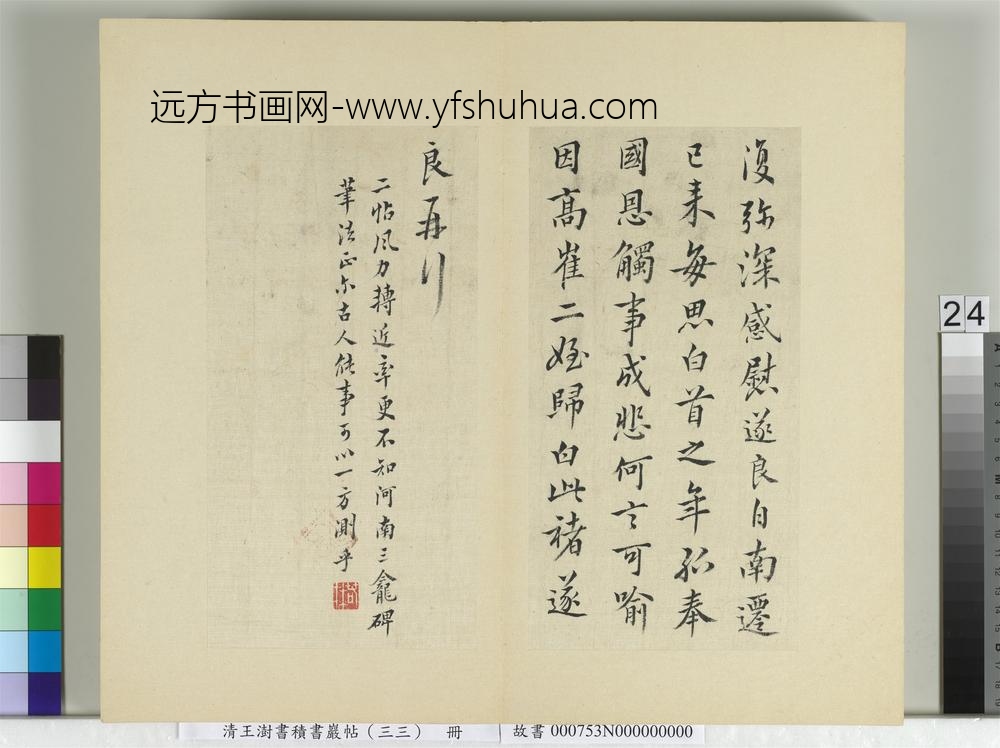 远方书画网-www.yfshuhua.com
復弥深感慰遂良自南遷
已来每思白首之年孤奉
國恩觸事成悲何言可喻
因高崔二姪歸白此褚遂
良再行
二帖风力轉近率更不知河南三龕碑
筆法正尔古人能事可以一方測乎
24
清王澍書積書巖帖（三三） 冊
故書 000753N000000000